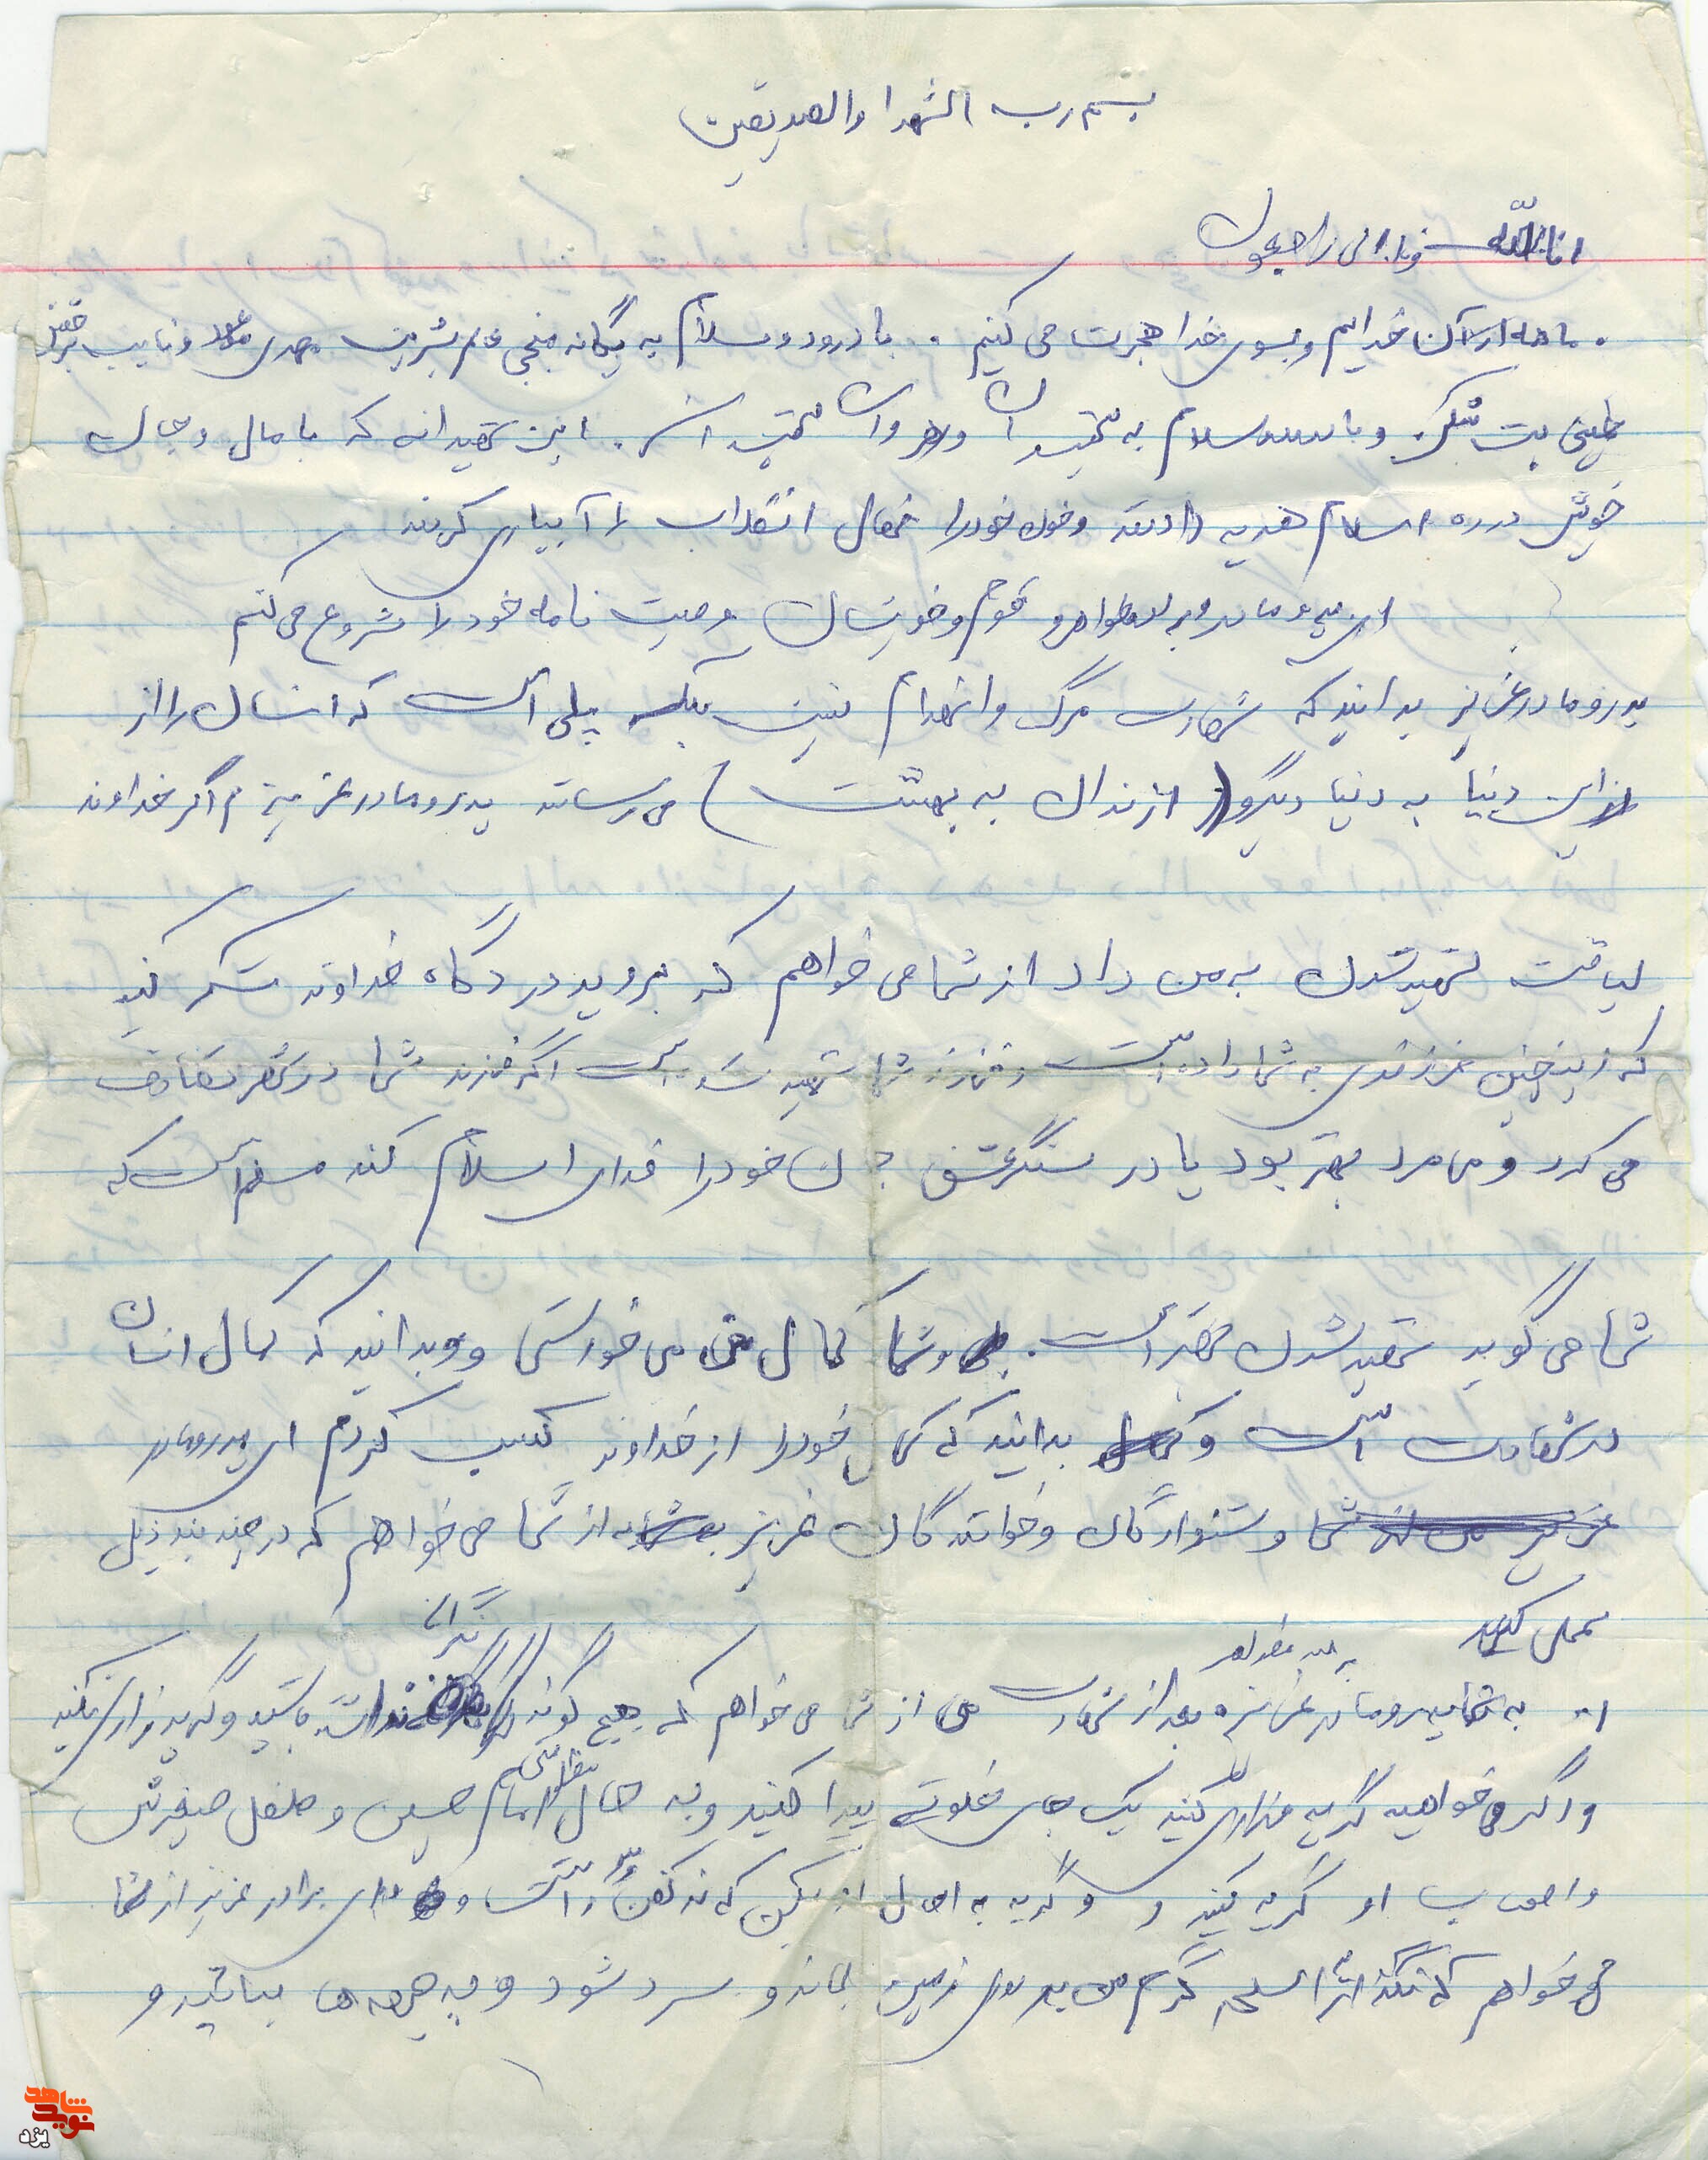 بسم رب الشهدا والصدیقین
انا لله و انا الی راجعون
. ما همه از آن خدایم و بسوی خدا هجرت می کنیم . با درود و سلام به یگانه منجی عالم بشریت مهدی موعود و نایب
خمینی بت شکن و با سلام به شهیدان و شهیدان . این شهیدانی که با مال و جان
خویش در ره اسلام هدیه دادند و خون خود را نهال انقلاب را آبیاری کردند
ای پدر و مادر و برادر و خواهر و قوم و خویشان وصیت نامه خود را شروع می کنم
پدر و مادر عزیز بدانید که شهادت مرگ و انهدام نیست بلکه پلی است که انسان را از
این دنیا به دنیا دیگر ( از زندان به بهشت ) می رساند پدر و مادر عزیزم اگر خداوند
لیاقت شهید شدن به من داد از شما می خواهم که بروید در درگاه خداوند شکر کنید
که این چنین فرزندی به شما داده است و فرزند شما شهید شده است اگر فرزند شما در تصادف
می کرد و می مرد بهتر بود یا در سنگر عشق جان خود را فدای اسلام کند مسلم است که
شما می گوید شهید شدن بهتر است . و شما کمال می خواستی و بدانید که کمال انسان
در شهادت است و بدانید که کمال خود را از خداوند کسب کردم ای پدر و مادر
عزیز شما و شنوادگان و خوانندگان عزیز از شما می خواهم که در چند بند ذیل
عمل کنید
۱. به شما پدر و مادر عزیزم بعد از شهادت من از شما می خواهم که هیچ گونه نگرانی نداشته باشید و گریه زاری نکنید
و اگر می خواهید گریه و زاری کنید یک جای خلوتی پیدا کنید و به حال مظلومی امام حسین و طفل صغیرش
و اصحاب او گریه کنید و گریه به احوال کنید که نه کفن داشت و ای برادر عزیز از شما
می خواهم که نگذار اسلحه گرم من بر روی زمین بماند و سرد شود و به جبهه ها بیائید و
شاهد
نوید
یزد